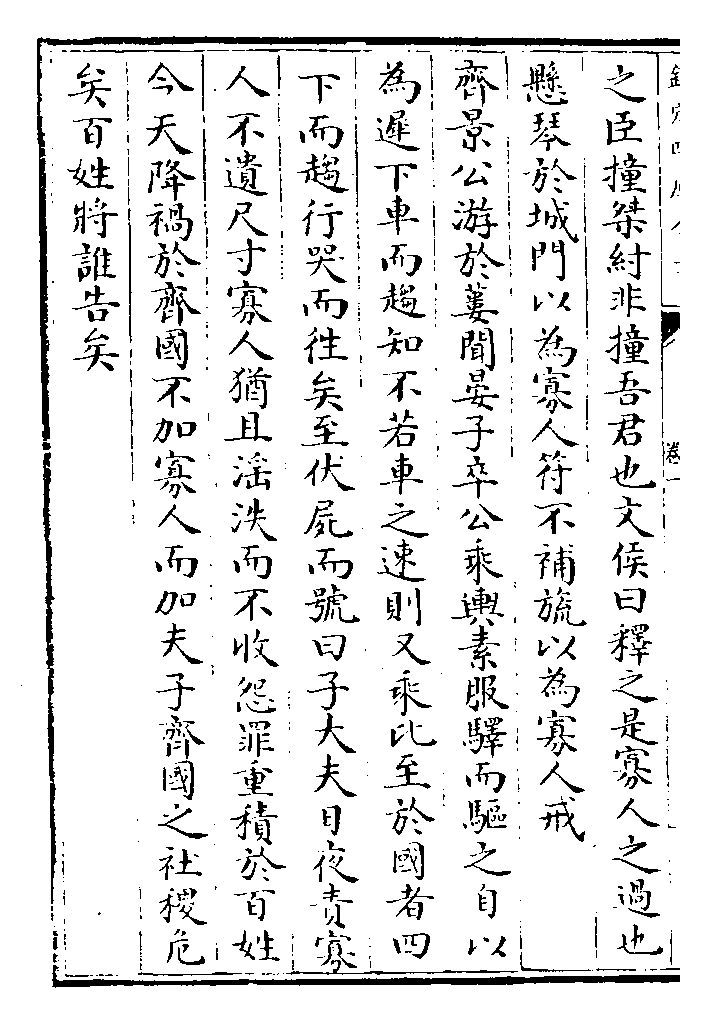 之臣撞桀紂非撞吾君也文侯曰釋之是寡人之過也
懸琴於城門以為寡人符不補旒以為寡人戒
齊景公游於蔞聞晏子卒公乘輿素服驛而驅之自以
為遲下車而趨知不若車之速則又乘比至於國者四
下而趨行哭而徃矣至伏屍而號曰子大夫日夜責寡
人不遺尺寸寡人猶且淫泆而不收怨罪重積於百姓
今天降禍於齊國不加寡人而加夫子齊國之社稷危
矣百姓將誰告矣
卷一